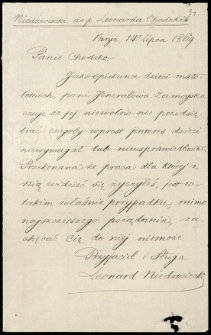 Niedźwiecki do p. Leonarda Chodźki
Paryż, 14 Lipca 1869
Panie Chodźko,
Jako opiekunce dzieci mało-
letnich, pani Jenerałowa Zamoyska
czyż że jej niewolno nic przedsię-
brać czegoby wprost interes dzieci
niewymagał lub nieusprawiedliwiał.
Przekonana że praca dla której z
nią widzieć się życzyłeś, jest w
takim właśnie przypadku, mimo
najszczerszego pożądania, za-
chęcać Cię do niej niemoże.
Przyjaciel i Sługa
Leonard Niedźwiecki